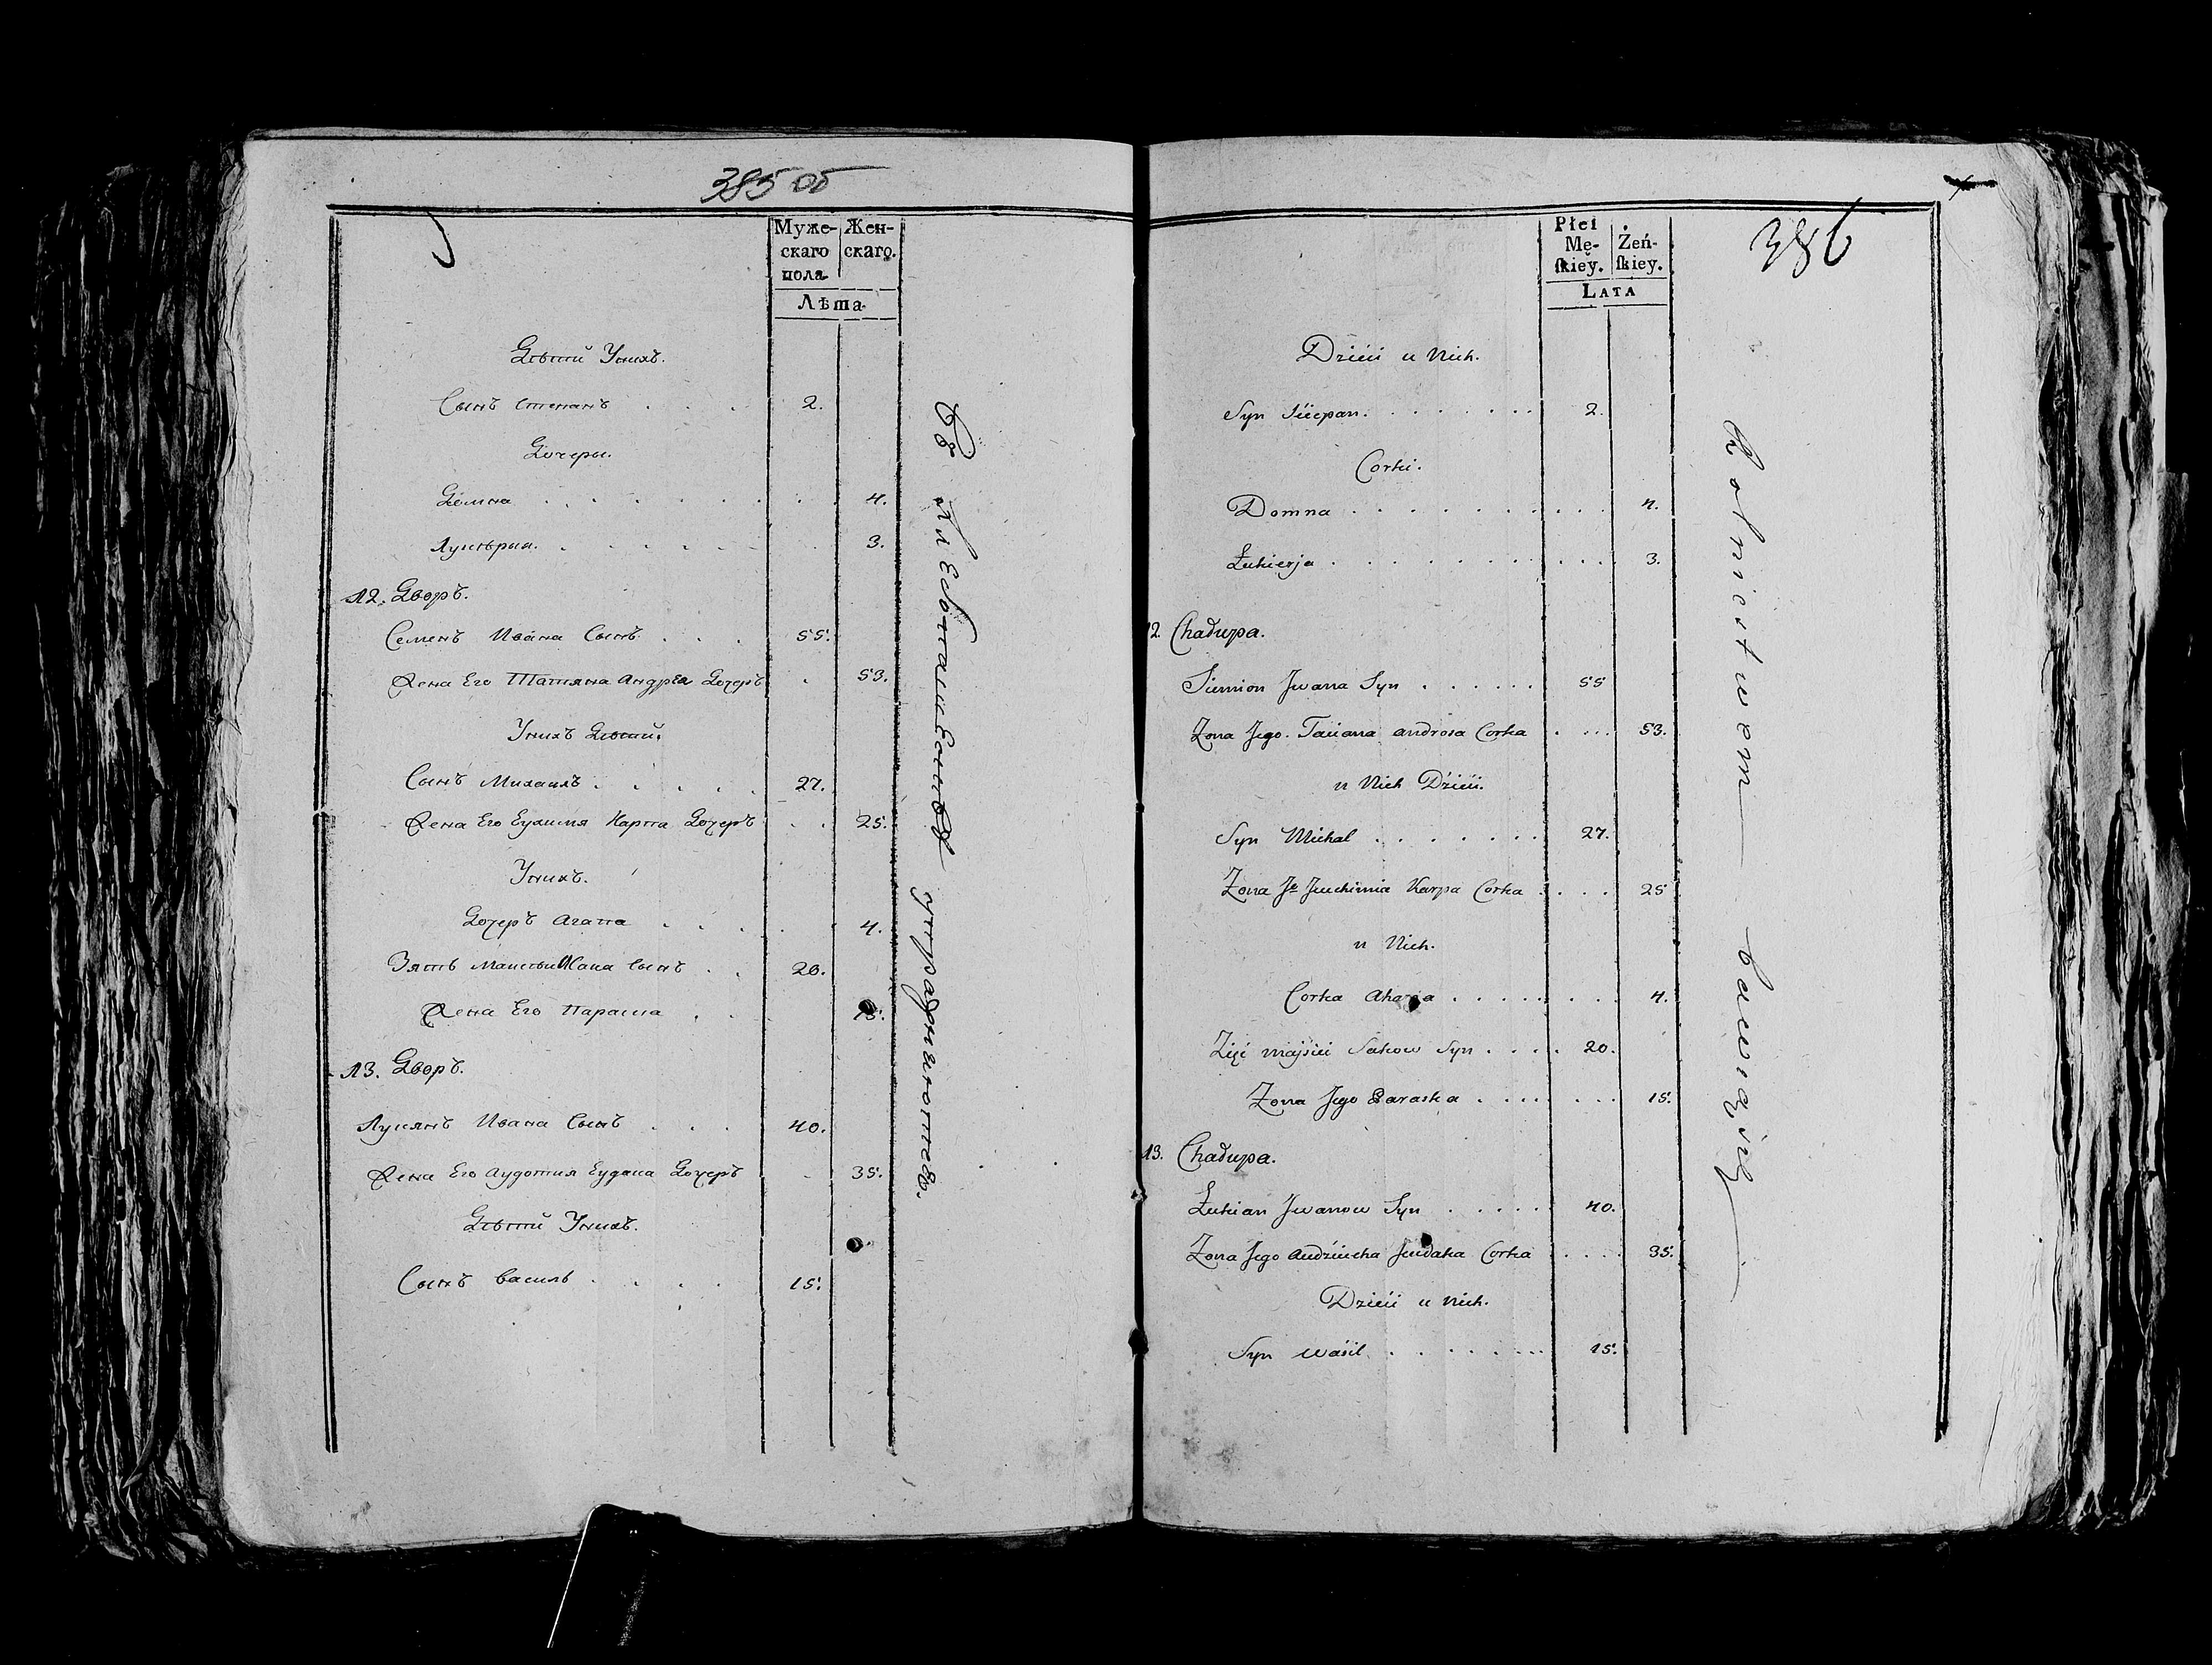 385 об
Муже-
скаго
пола
Жен-
скаго.
Лѣта.
Дѣтий Унихъ.
Сынъ Степанъ . . . 2.
Дочеры.
Домна . . . . . . . 4.
Лукѣрыя. . . . . . . 3.
12. Дворъ.
Семенъ Ивана Сынъ . . . 55.
Жена Его Татяна Андрея Дочеръ . 53.
Унихъ Дѣтий.
Сынъ Михаилъ . . . . . 27.
Жена Его Еухимия Карпа Дочеръ . . 25.
Унихъ.
Дочеръ Агапа . . . . . 4.
Зять Сынъ . . 20.
Жена Его Параска . . 15.
13. Дворъ.
Лукянъ Ивана Сынъ . . . 40.
Жена Его Аудотия Еудака Дочеръ . . 35.
Дѣтий Унихъ.
Сынъ Василь . . . . 15.
Въ хлебопашествѣ упражняются.
386
Płei
Mę-
ſkieỹ.
Żeń-
ſkiey.
LATA
Dzieći u Nich.
Syn Sciepan. . . . . . . . 2.
Corki.
Domna . . . . . . . . . . 4.
Łukierja . . . . . . . . . . 3.
12. Chałupa.
Siemion Jwana Syn . . . . . . 55
Zona Jego. Taciana androsa Corka . . . . 53.
u Nich Dzieći.
Syn Michal . . . . . . . 27.
Zona Je Jeuchimia Karpa Corka . . . . 25
u Nich.
Corka Ahapa . . . . . . . . 4.
Zięć majsiei Sakow Syn . . . . 20.
Zona Jego Paraska . . . . . . . 15.
13. Chałupa.
Łukian Jwanow Syn . . . . . 40.
Zona Jego Audziucha Jeudaka Corka . . . . 35.
Dzieći u Nich.
Syn Wasil . . . . . . . . 15.
Rolnictwem bawią się